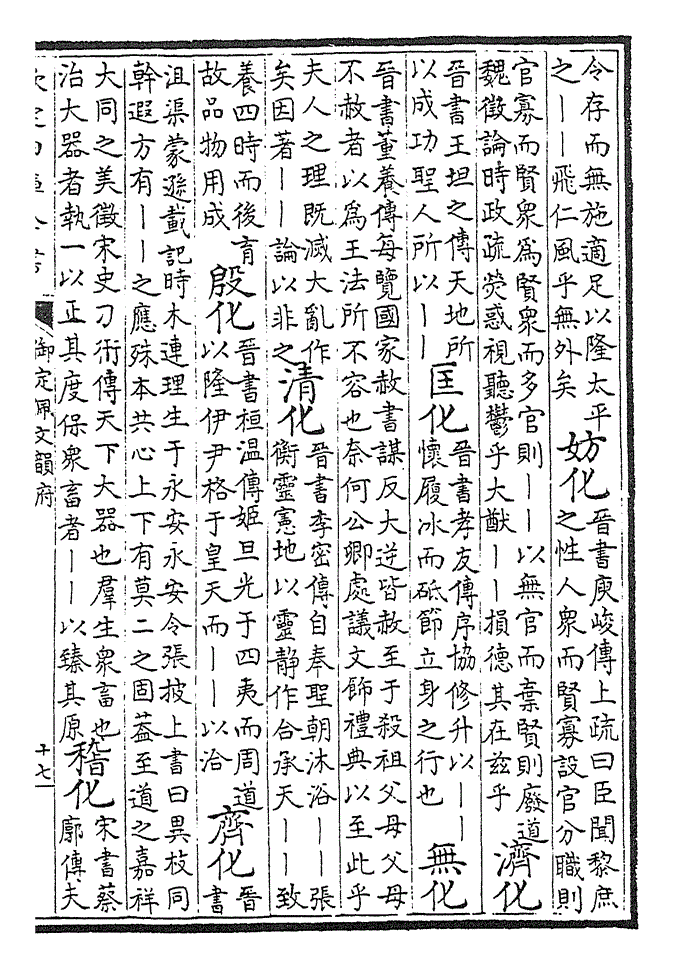 令存而無施適足以隆太平
之丨丨飛仁風乎無外矣
妨化
晉書庾峻傳上疏曰臣聞黎庶
之性人衆而賢寡設官分職則
官寡而賢衆爲賢衆而多官則丨丨以無官而棄賢則廢道
魏徵論時政疏熒惑視聽鬱乎大猷丨丨損德其在兹乎
濟化
晉書王坦之傳天地所
以成功聖人所以丨丨
匡化
晉書孝友傳序協修升以丨丨
懷履冰而砥節立身之行也
無化
晉書董養傳每覽國家赦書謀反大逆皆赦至于殺祖父母父母
不赦者以爲王法所不容也奈何公卿處議文飾禮典以至此乎
夫人之理既滅大亂作
矣因著丨丨論以非之
清化
晉書李密傳自奉聖朝沐浴丨丨張
衡靈憲地以靈静作合承天丨丨致
養四時而後育
故品物用成
殷化
晉書桓温傳姬旦光于四夷而周道
以隆伊尹格于皇天而丨丨以洽
齊化
晉
書
沮渠蒙遜載記時木連理生于永安永安令張披上書曰異枝同
幹遐方有丨丨之應殊本共心上下有莫二之固葢至道之嘉祥
大同之美徵宋史刁衎傳天下大器也羣生衆畜也
治大器者執一以正其度保衆畜者丨丨以臻其原
稽化
宋書蔡
廓傳夫
欽定四庫全書
御定佩文韻府
十七